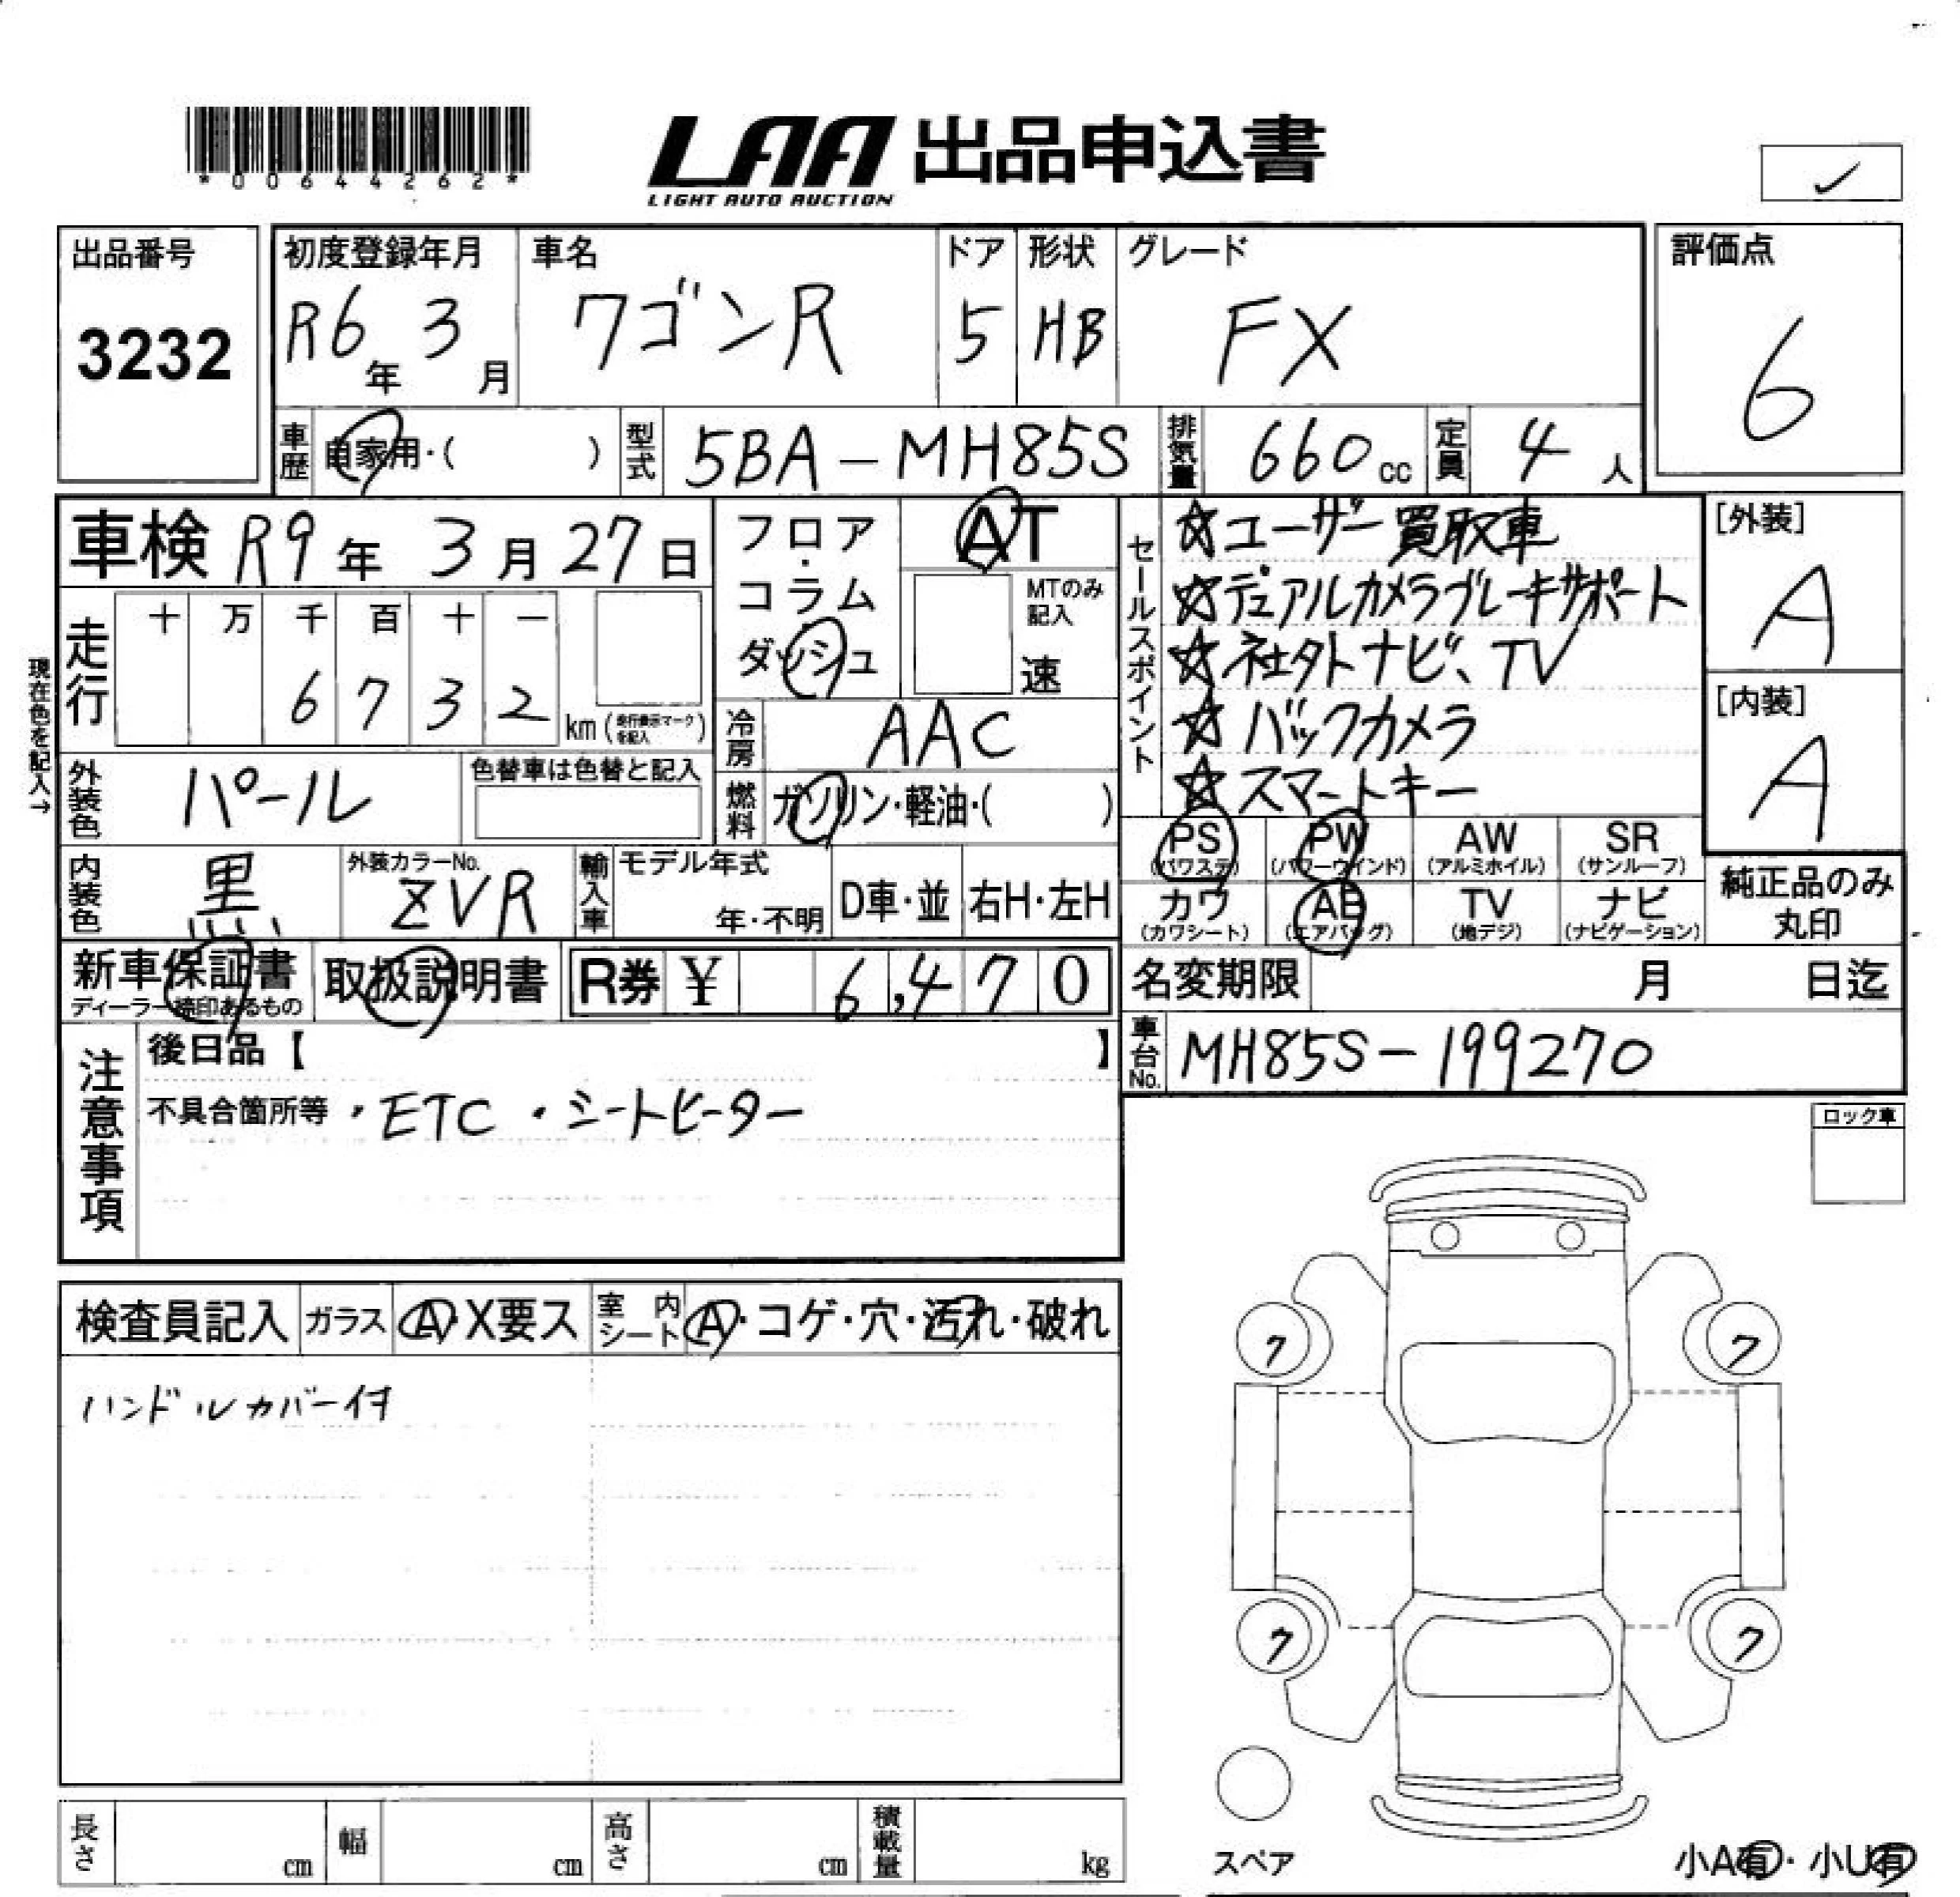 *00644262*
LAA 出品申込書
LIGHT AUTO AUCTION
✓
出品番号
3232
初度登録年月
R6年 3月
車名
ワゴンR
ドア
5
形状
HB
グレード
FX
評価点
6
車歴
自家用・( )
型式
5BA-MH85S
排気量
660cc
定員
4人
車検 R9年 3月27日
フロア・コラム
ダッシュ
AT
MTのみ記入
速
セールスポイント
☆ユーザー買取車
☆デュアルカメラブレーキサポート
☆社外ナビ、TV
☆バックカメラ
☆スマートキー
[外装]
A
[内装]
A
現在色を記入→
走行
十 万 千 百 十 一
6 7 3 2
km(走行表示マークを記入)
冷房
AAC
外装色
パール
色替車は色替と記入
燃料
ガソリン・軽油・( )
内装色
黒
外装カラーNo.
ZVR
輸入車
モデル年式
年・不明
D車・並
右H・左H
PS
(パワステ)
PW
(パワーウインド)
AW
(アルミホイル)
SR
(サンルーフ)
カワ
(カワシート)
AB
(エアバッグ)
TV
(地デジ)
ナビ
(ナビゲーション)
純正品のみ
丸印
新車保証書
ディーラー捺印あるもの
取扱説明書
R券 ¥ 6,470
名変期限 月 日迄
車台No.
MH85S-199270
注意事項
後日品【 】
不具合箇所等 ・ETC ・シートヒーター
ロック車
検査員記入
ガラス
A・X要ス
室内シート
A・コゲ・穴・汚れ・破れ
ハンドルカバー付
ワ
ワ
ワ
ワ
スペア
小A有・小U有
長さ cm
幅 cm
高さ cm
積載量 kg